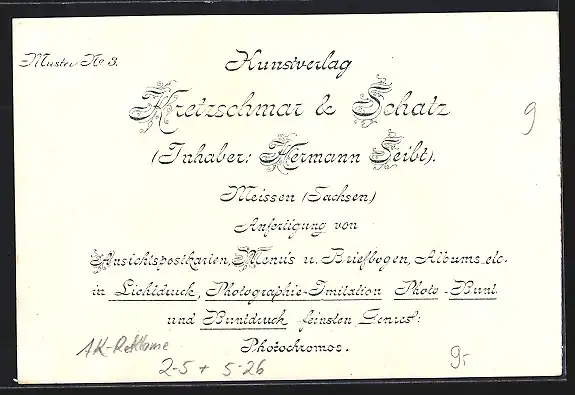 Muster No 3.
Kunstverlag
Kretzschmar & Schatz
(Inhaber: Hermann Seibt).
9
Meissen (Sachsen)
Anfertigung von
Ansichtspostkarten, Menüs u. Briefbogen, Albums etc.
in Lichtdruck, Photographie-Imitation Photo-Bunt
und Buntdruck feinsten Genres:
Photochromos.
AK-Reklame
2-5 + 5-26
9,-